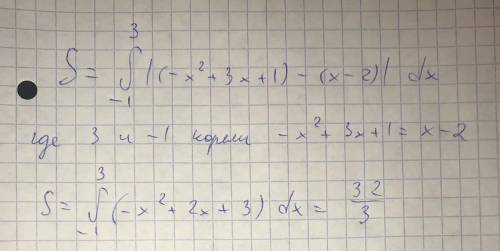 S = ∫₋₁³ |(-x² + 3x + 1) - (x - 2)| dx
где 3 и -1 корни -x² + 3x + 1 = x - 2
S = ∫₋₁³ (-x² + 2x + 3) dx = 32/3